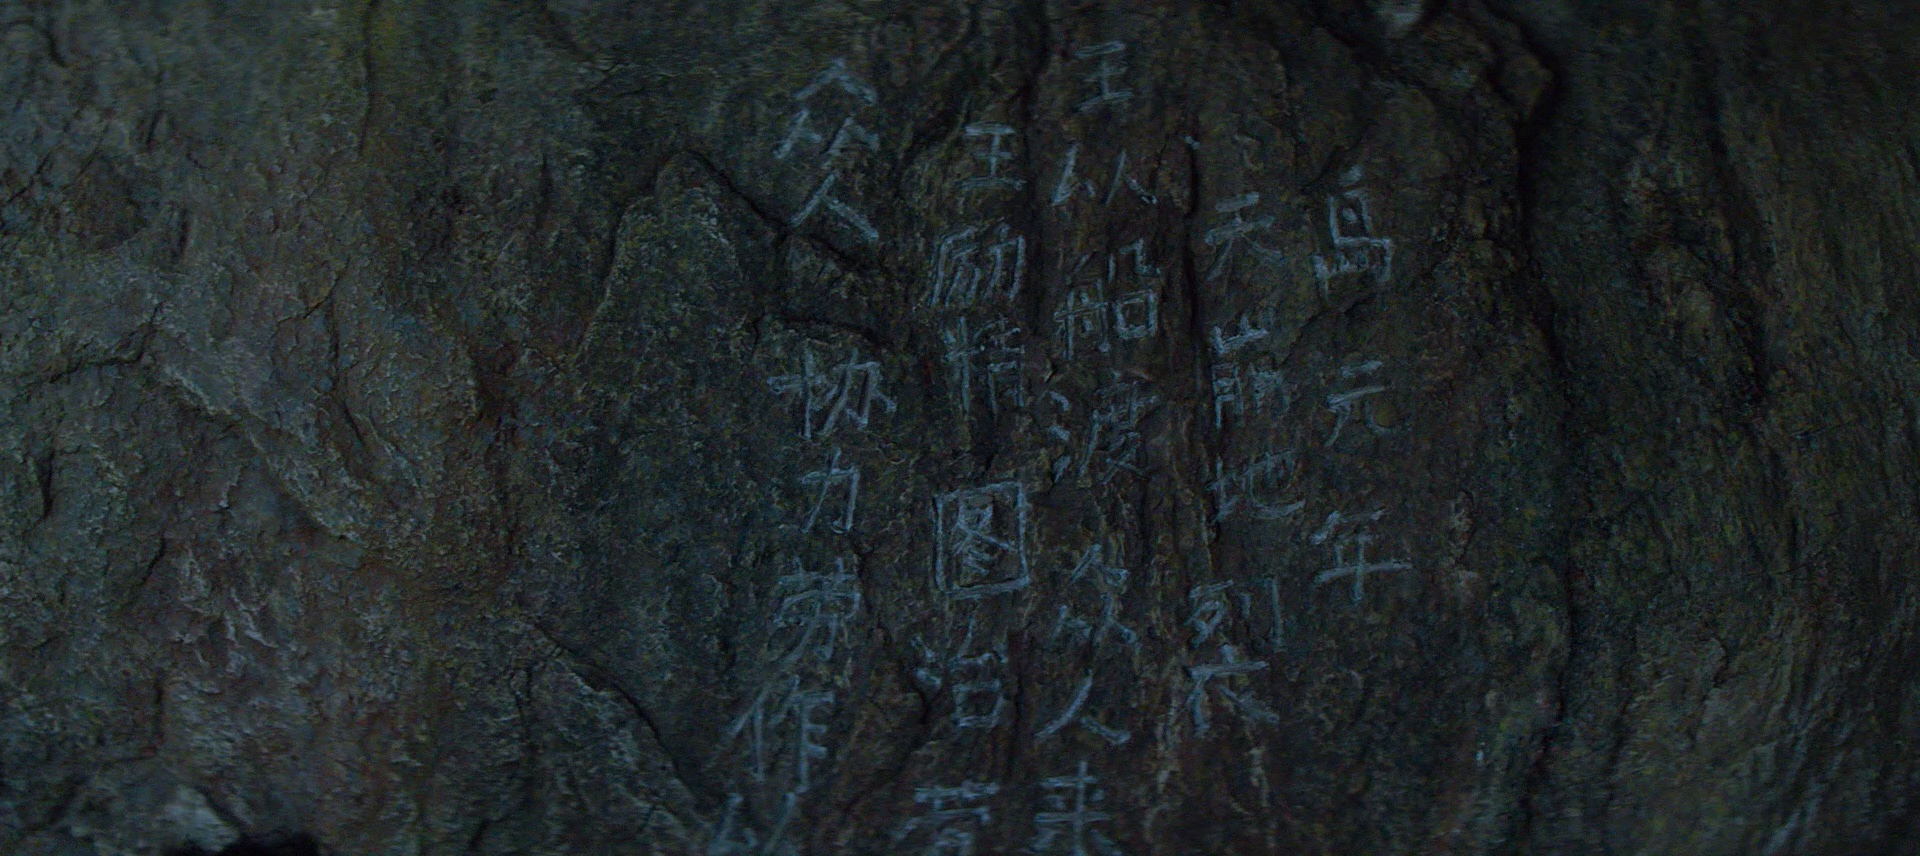 岛元年
天崩地裂
王以船渡众人来
王励精图治
众人协力劳作